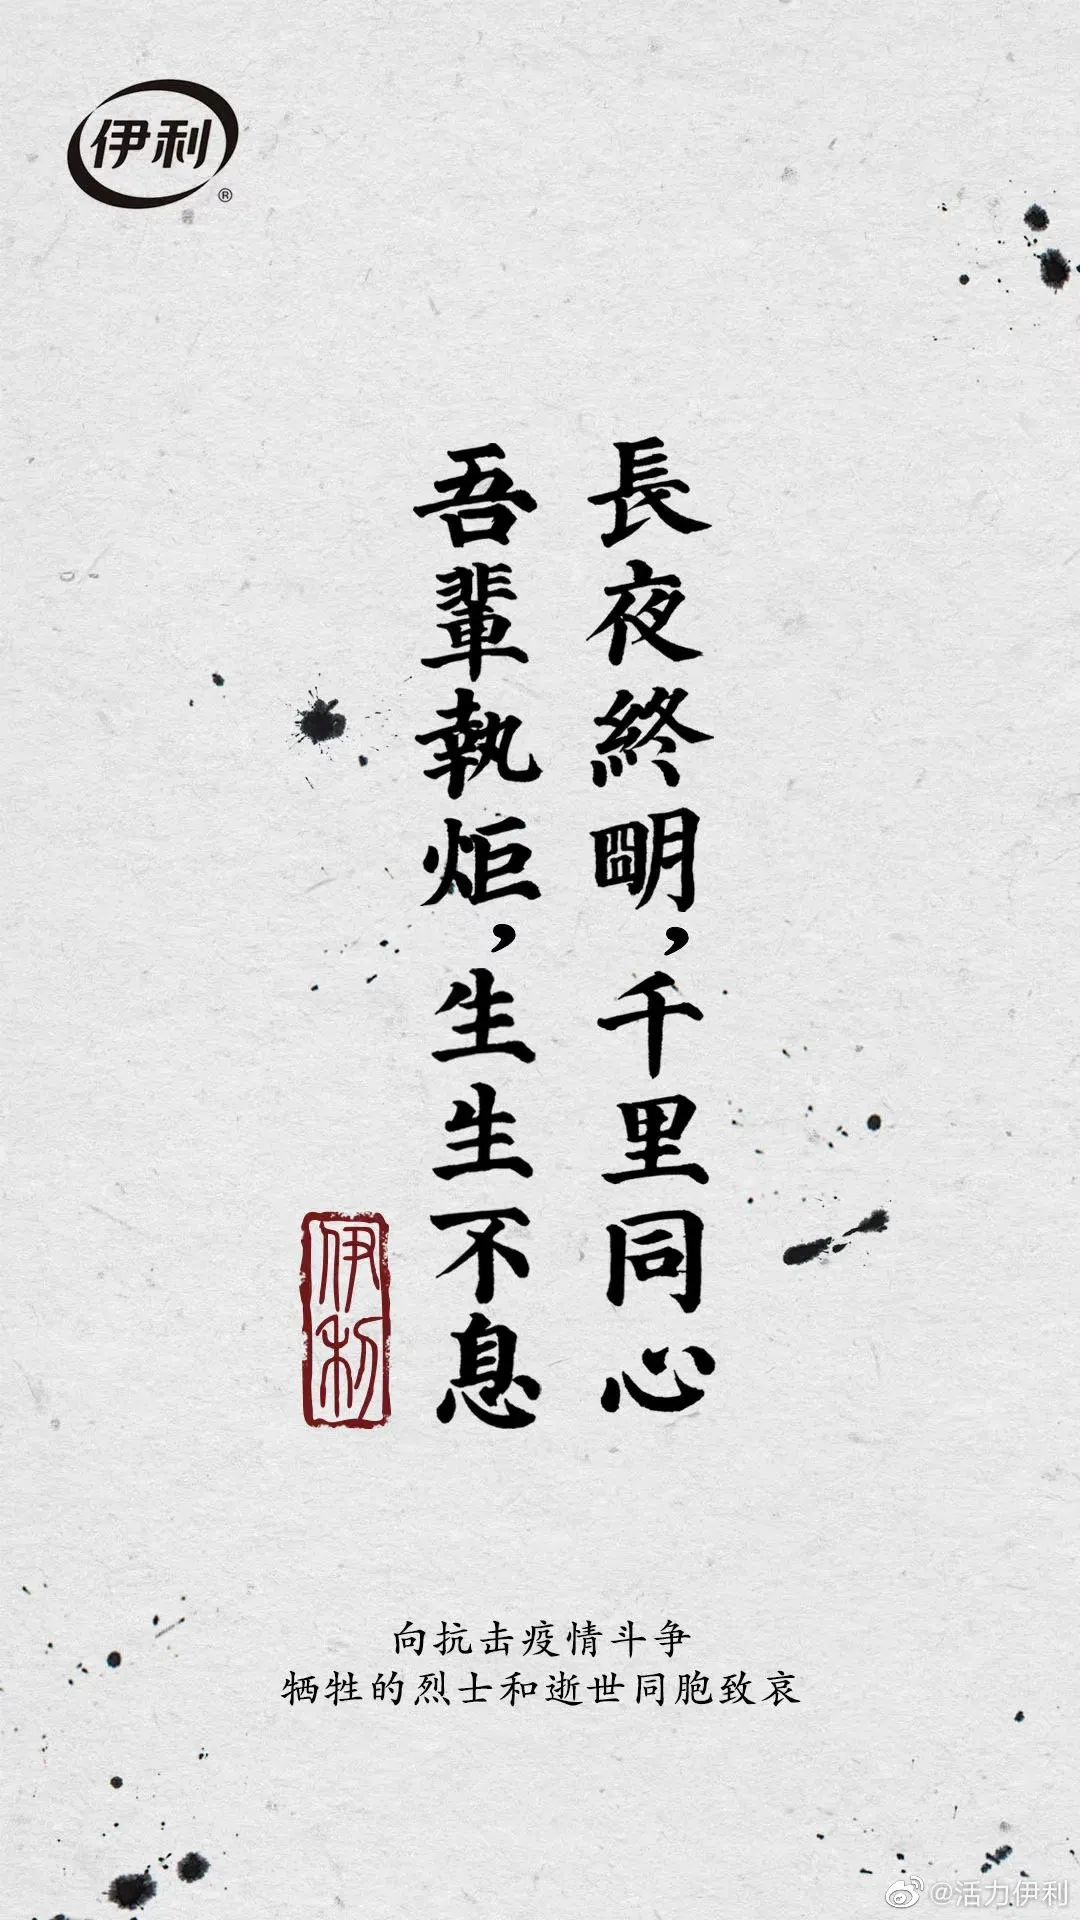 伊利
®
長夜終朙，千里同心
吾輩執炬，生生不息
伊利
向抗击疫情斗争
牺牲的烈士和逝世同胞致哀
@活力伊利